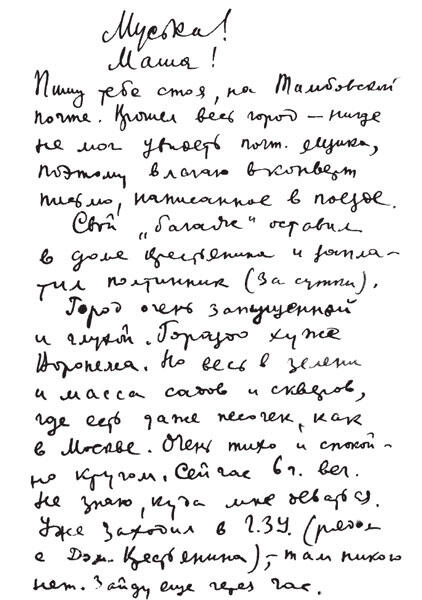 Муська!
Маша!
Пишу тебе стоя, на Тамбовской
почте. Прошел весь город — нигде
не мог увидеть почт. ящика,
поэтому влагаю в конверт
письмо, написанное в поезде.
Свой „багаж“ оставил
в доме крестьянина и запла-
тил полтинник (за сутки).
Город очень запущенный
и глухой. Гораздо хуже
Воронежа. Но весь в зелени
и масса садов и скверов,
где есть даже песочек, как
в Москве. Очень тихо и спокой-
но кругом. Сейчас 6 ч. веч.
Не знаю, куда мне деваться.
Уже заходил в ГЗУ. (рядом
с Дом. Крестьянина), — там никого
нет. Зайду еще через час.